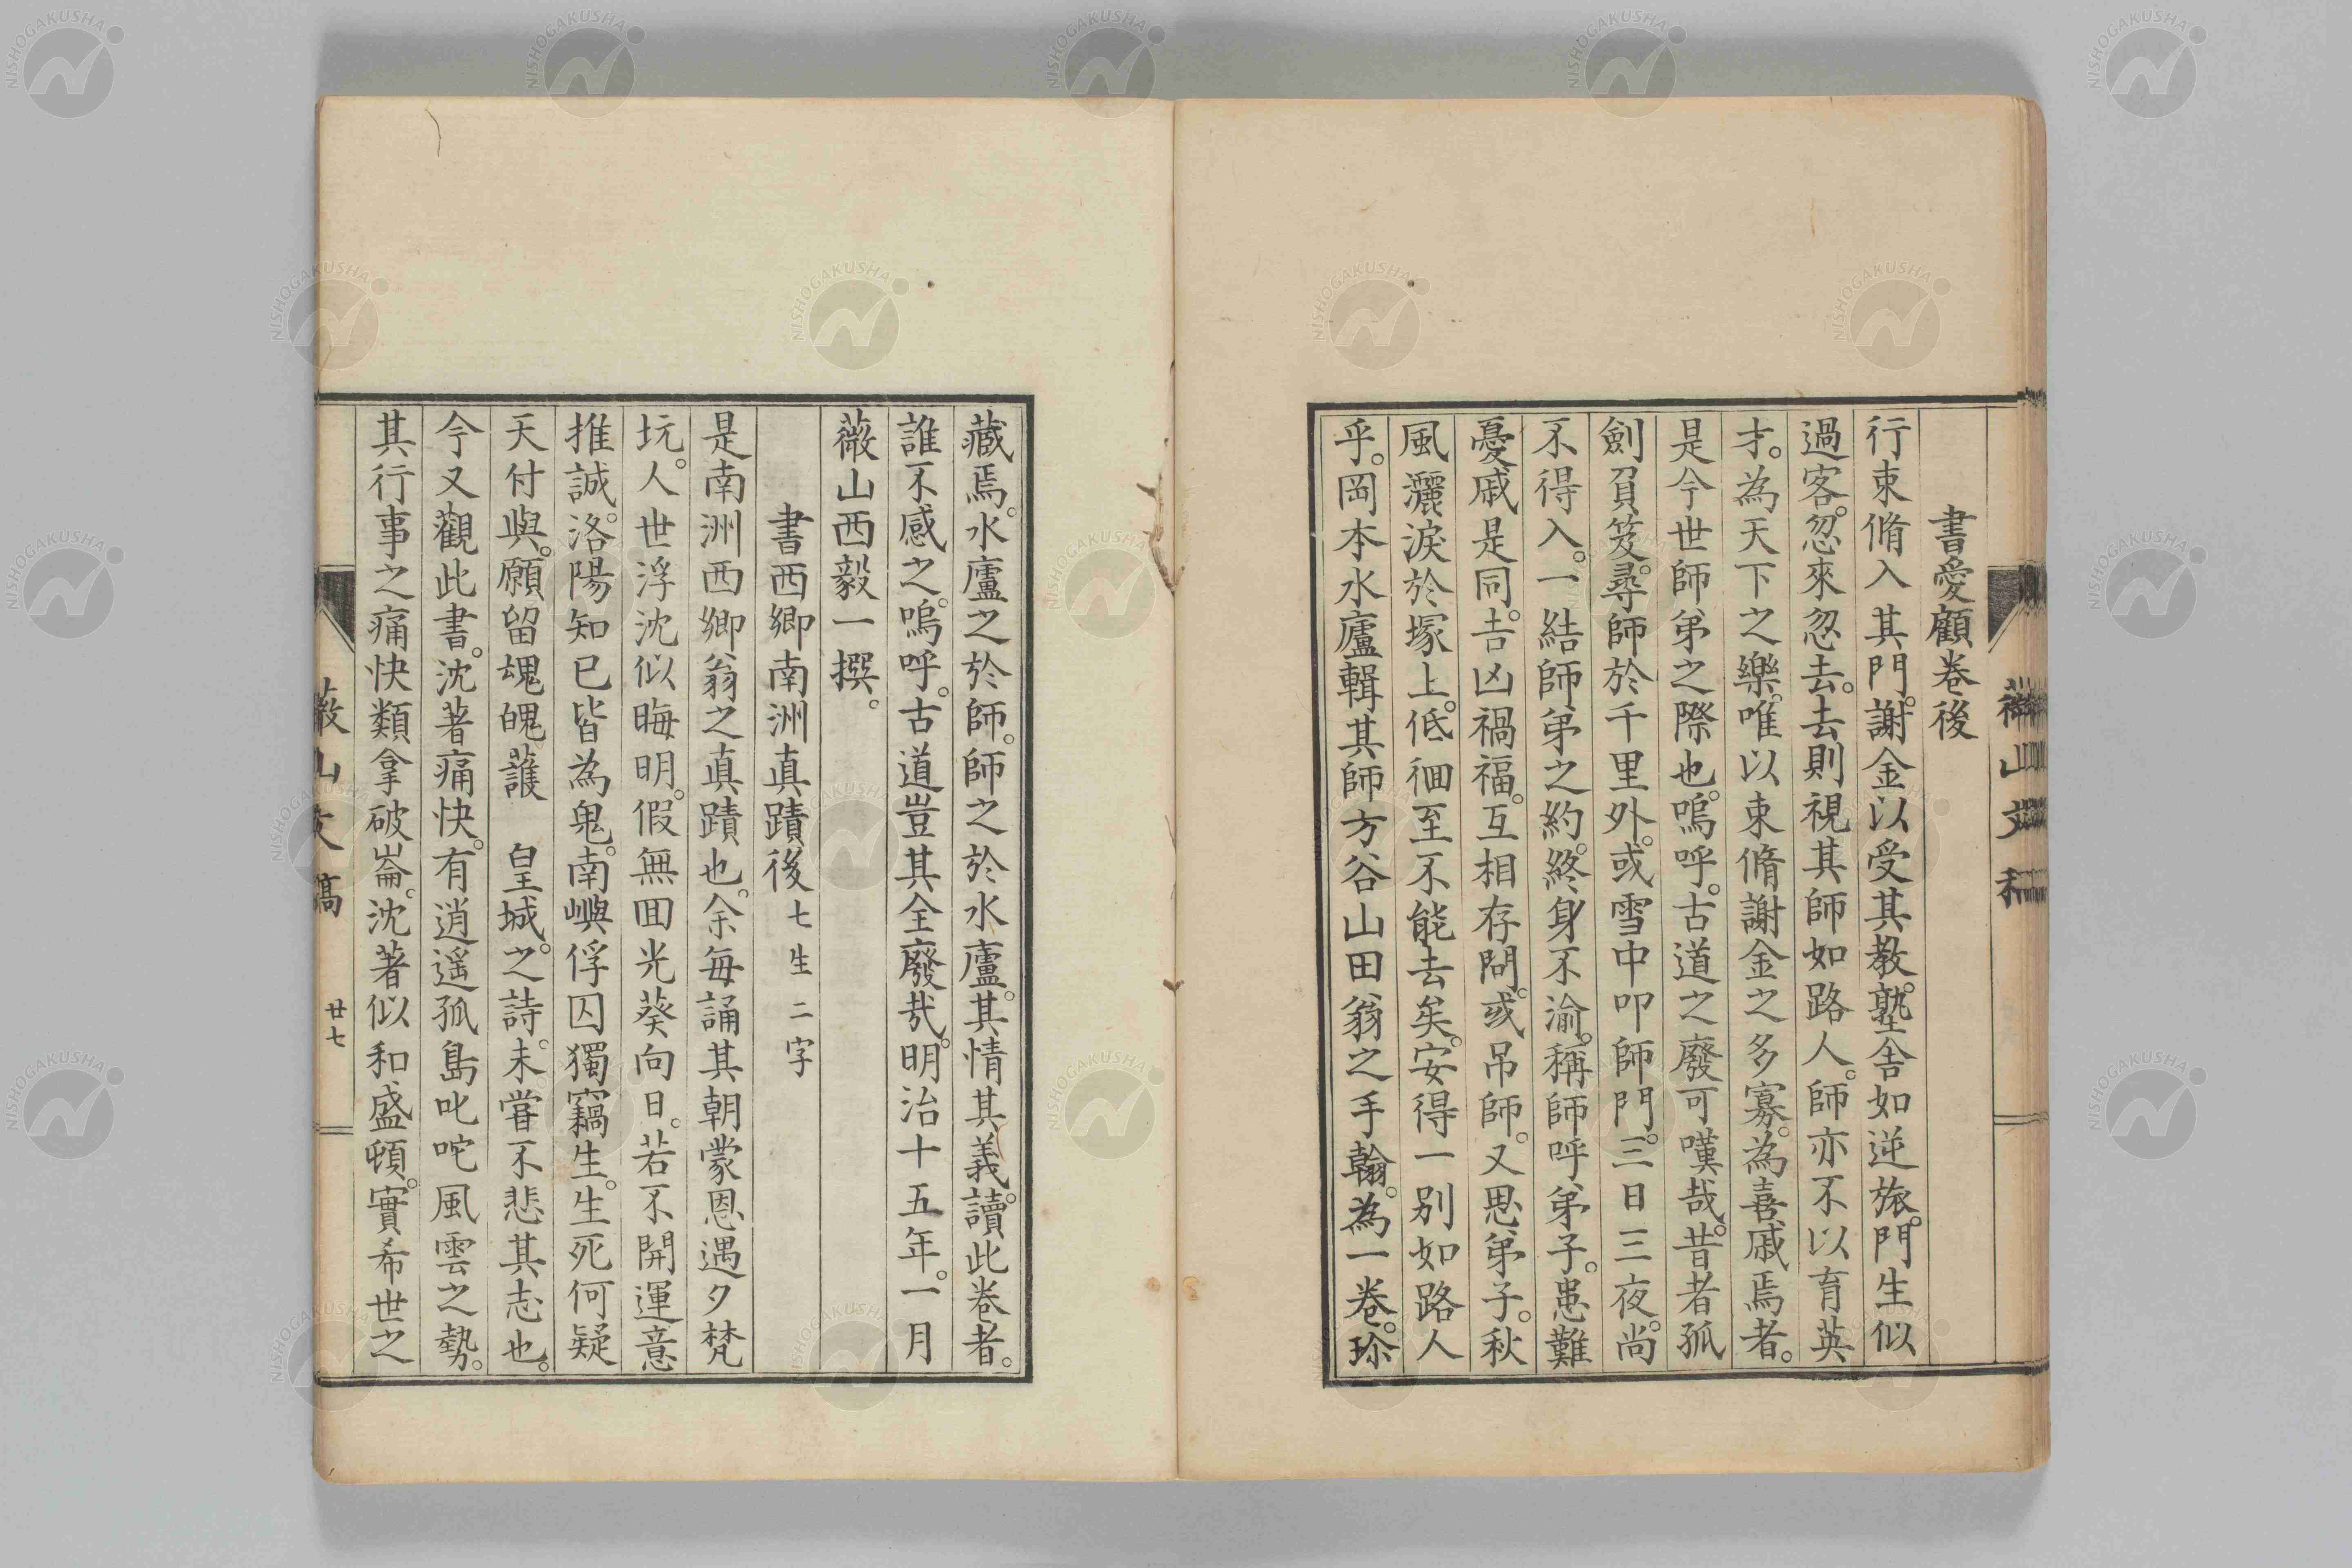 書愛顧卷後
行束脩入其門。謝金以受其教。塾舍如逆旅。門生似
過客。忽來忽去。去則視其師如路人。師亦不以育英
才。為天下之樂。唯以束脩謝金之多寡。為喜戚焉者。
是今世師弟之際也。嗚呼。古道之廢可嘆哉。昔者孤
劍負笈。尋師於千里外。或雪中叩師門。三日三夜。尚
不得入。一結師弟之約。終身不渝。稱師呼弟子。患難
憂戚是同。吉凶禍福。互相存問。或吊師。又思弟子。秋
風灑淚於塚上。低徊至不能去矣。安得一別如路人
乎。岡本水廬輯其師方谷山田翁之手翰。為一卷。珍
藏焉。水廬之於師。師之於水廬。其情其義。讀此卷者。
誰不感之。嗚呼。古道豈其全廢哉。明治十五年。一月
薇山西毅一撰。
書西鄉南洲真蹟後 七生二字
是南洲西鄉翁之真蹟也。余每誦其朝蒙恩遇夕焚
坑。人世浮沈似晦明。假無回光葵向日。若不開運意
推誠。洛陽知已皆為鬼。南嶼俘囚獨竊生。生死何疑
天付與。願留魂魄護 皇城。之詩。未嘗不悲其志也。
今又觀此書。沈著痛快。有逍遥孤島叱咤風雲之勢。
其行事之痛快類拿破崙。沈著似和盛頓。實希世之
薇山文稿 廿七
NISHOGAKUSHA